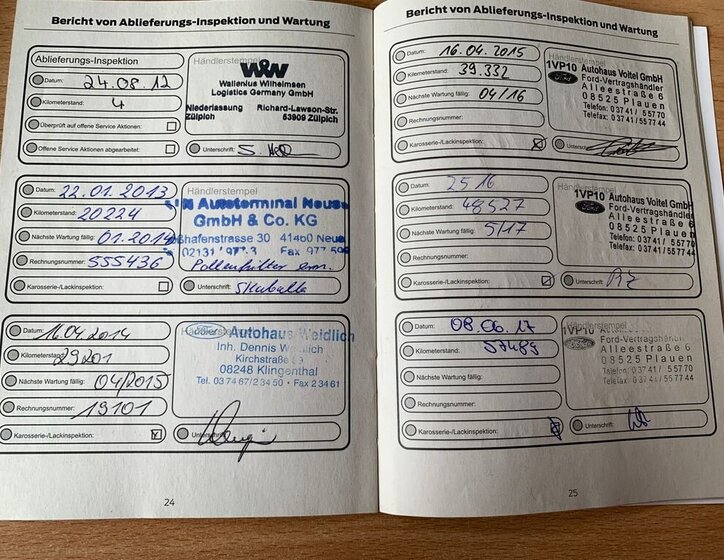 Bericht von Ablieferungs-Inspektion und Wartung
Ablieferungs-Inspektion
Datum: 24.08.12
Kilometerstand: 4
Überprüft auf offene Service Aktionen:
Offene Service Aktionen abgearbeitet:
Händlerstempel
WW
Wallenius Wilhelmsen
Logistics Germany GmbH
Niederlassung Richard-Lawson-Str.
Zülpich 53909 Zülpich
Unterschrift:
Datum: 22.01.2013
Kilometerstand: 20224
Nächste Wartung fällig: 01.2014
Rechnungsnummer: 555436
Karosserie-/Lackinspektion:
Händlerstempel
Autoterminal Neuss
GmbH & Co. KG
hafenstrasse 30 41460 Neuss
02131 Fax
Pollenfilter ern.
Unterschrift:
Datum: 16.04.2014
Kilometerstand: 29201
Nächste Wartung fällig: 04/2015
Rechnungsnummer: 19101
Karosserie-/Lackinspektion:
Händlerstempel
Ford Autohaus Weidlich
Inh. Dennis Weidlich
Kirchstraße
08248 Klingenthal
Tel. 03 74 67/2 34 50 • Fax 2 34 61
Unterschrift:
24
Bericht von Ablieferungs-Inspektion und Wartung
Datum: 16.04.2015
Kilometerstand: 39.332
Nächste Wartung fällig: 04/16
Rechnungsnummer:
Karosserie-/Lackinspektion:
Händlerstempel
1VP10 Autohaus Voitel GmbH
Ford Ford-Vertragshändler
Alleestraße 6
08525 Plauen
Telefon: 0 37 41 / 5 57 70
Telefax: 0 37 41 / 55 77 44
Unterschrift:
Datum: 2516
Kilometerstand: 48527
Nächste Wartung fällig: 5/17
Rechnungsnummer:
Karosserie-/Lackinspektion:
Händlerstempel
1VP10 Autohaus Voitel GmbH
Ford Ford-Vertragshändler
Alleestraße 6
08525 Plauen
Telefon: 0 37 41 / 5 57 70
Telefax: 0 37 41 / 55 77 44
Unterschrift:
Datum: 08.06.17
Kilometerstand: 57489
Nächste Wartung fällig:
Rechnungsnummer:
Karosserie-/Lackinspektion:
Händlerstempel
1VP10
Ford Ford-Vertragshändler
Alleestraße 6
08525 Plauen
Telefon: 0 37 41 / 5 57 70
Telefax: 0 37 41 / 55 77 44
Unterschrift:
25